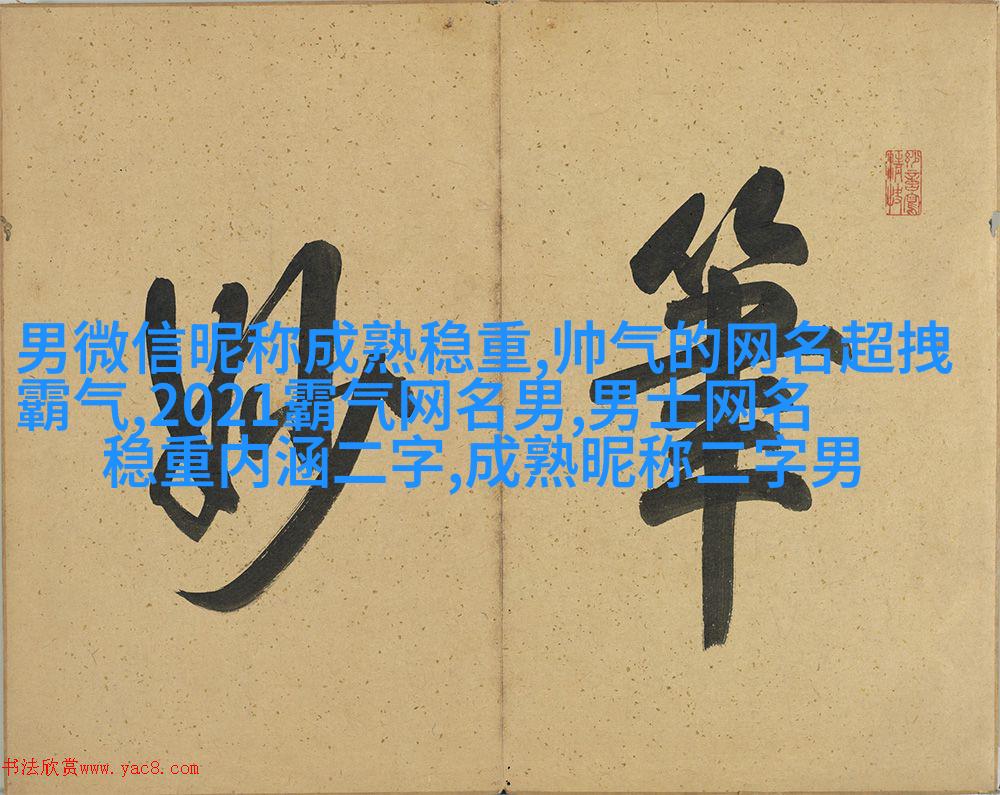 筆
妙
男微信昵称成熟稳重,帅气的网名超拽
霸气,2021霸气网名男,男士网名
稳重内涵二字,成熟昵称二字男
书法欣赏www.yac8.com